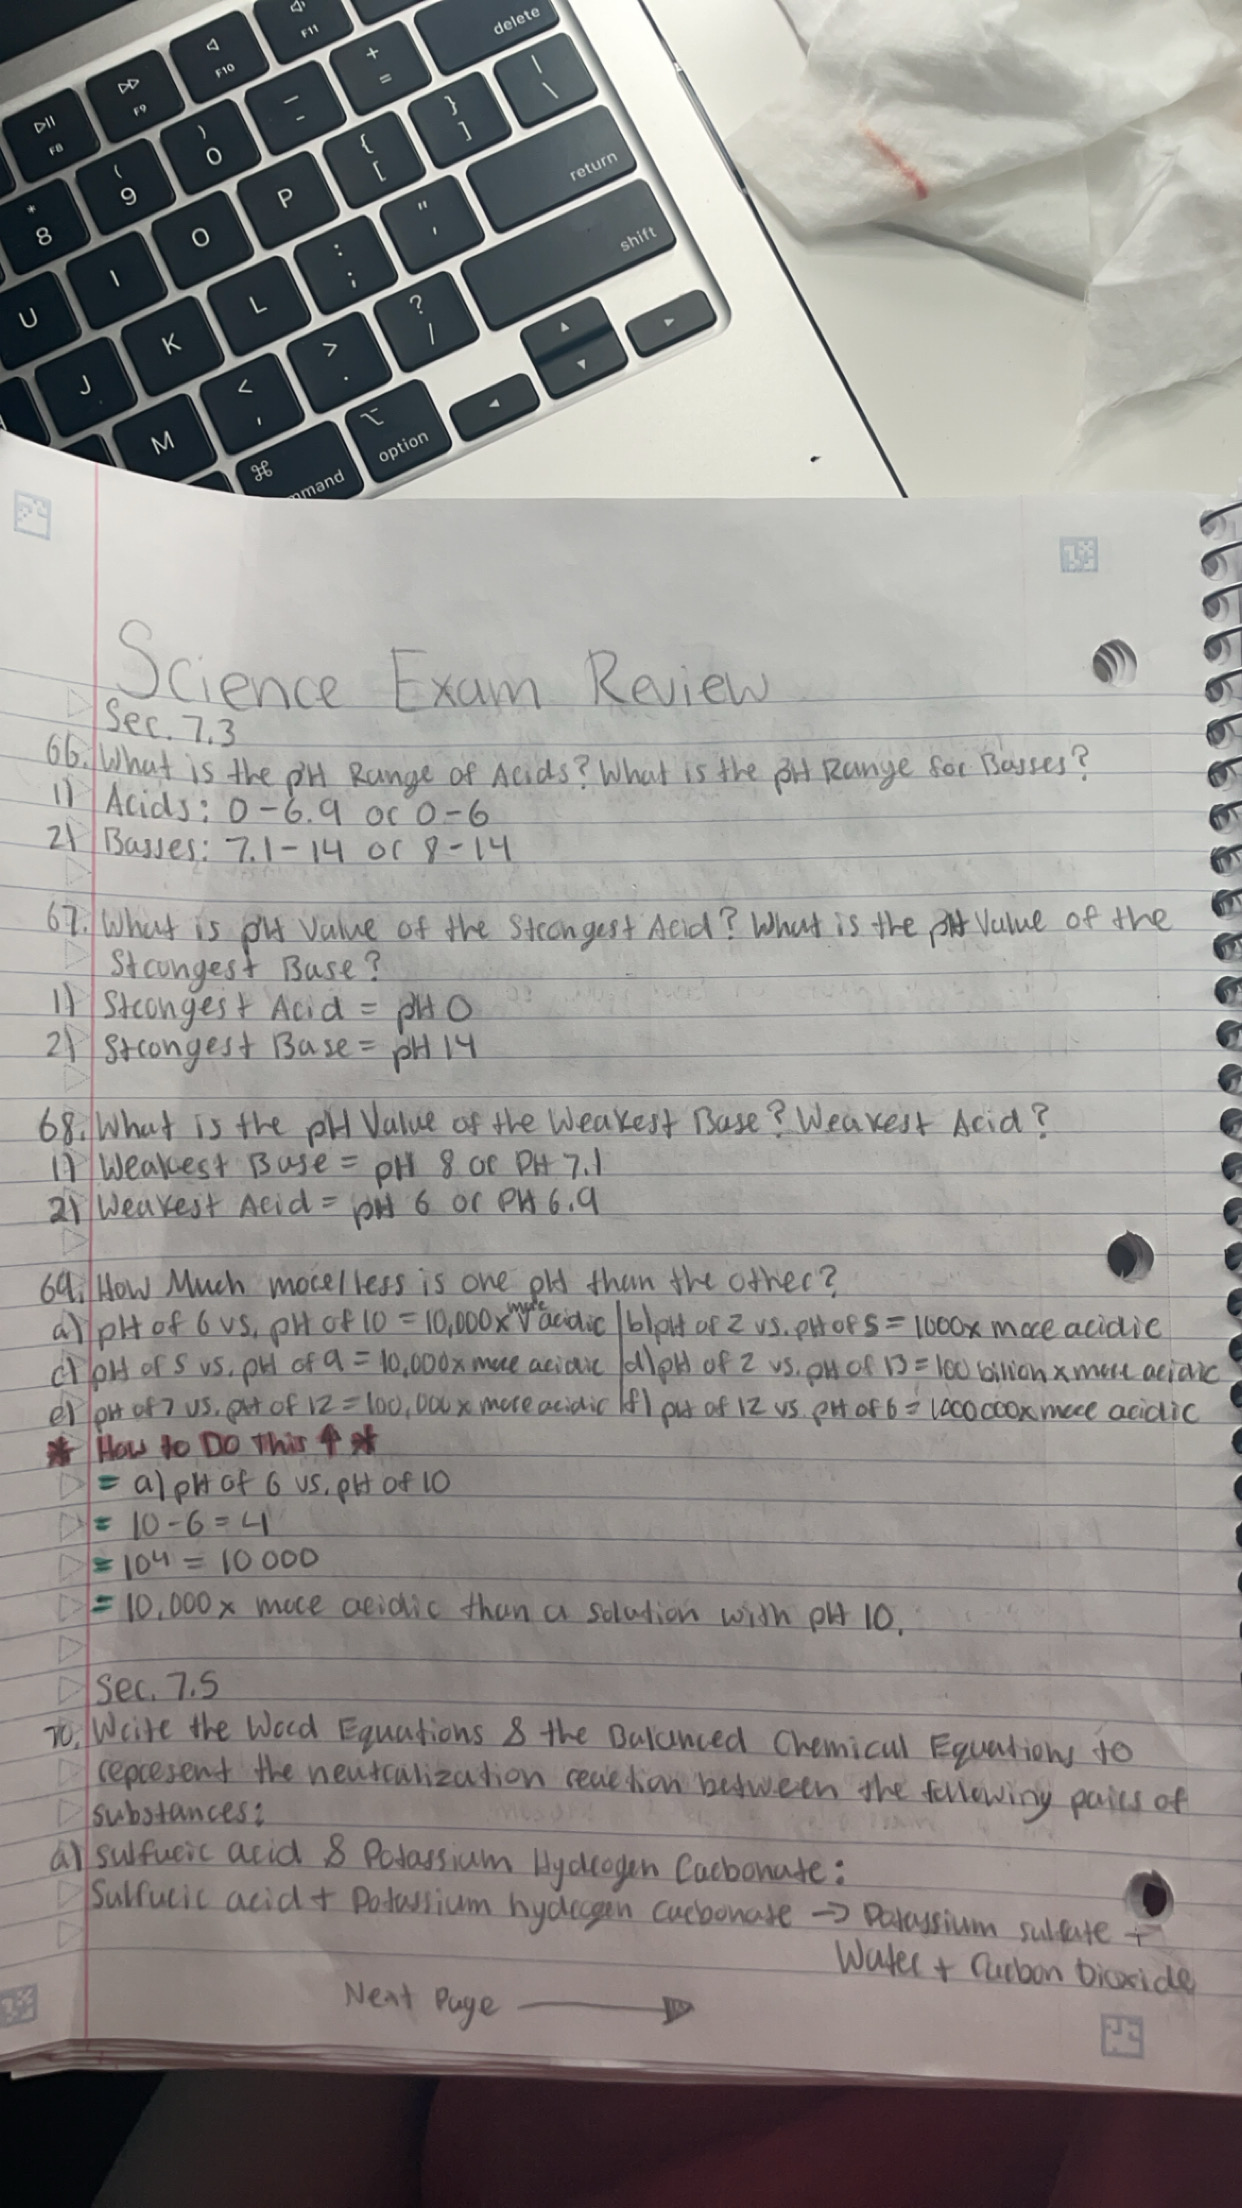 delete
F11
F10
F9
F8
+ =
| \
_ -
} ]
) 0
{ [
return
( 9
P
" '
* 8
O
: ;
shift
I
L
? /
U
K
> .
J
< ,
M
option
mmand
Science Exam Review
Sec. 7.3
66. What is the pH Range of Acids? What is the pH Range for Basses?
1) Acids: 0-6.9 or 0-6
2) Basses: 7.1-14 or 8-14
67. What is pH Value of the Strongest Acid? What is the pH Value of the
Strongest Base?
1) Strongest Acid = pH 0
2) Strongest Base = pH 14
68. What is the pH Value of the Weakest Base? Weakest Acid?
1) Weakest Base = pH 8 or PH 7.1
2) Weakest Acid = pH 6 or PH 6.9
69. How Much more/less is one pH than the other?
a) pH of 6 vs. pH of 10 = 10,000x more acidic | b) pH of 2 vs. pH of 5 = 1000x more acidic
c) pH of 5 vs. pH of 9 = 10,000x more acidic | d) pH of 2 vs. pH of 13 = 100 billion x more acidic
e) pH of 7 vs. pH of 12 = 100,000x more acidic | f) pH of 12 vs. pH of 6 = 1000000x more acidic
* How to Do This ↑ *
= a) pH of 6 vs. pH of 10
= 10-6=4
= 10⁴ = 10 000
= 10,000x more acidic than a solution with pH 10.
Sec. 7.5
70. Write the Word Equations & the Balanced Chemical Equations to
represent the neutralization reaction between the following pairs of
substances:
a) sulfuric acid & Potassium Hydrogen Carbonate:
Sulfuric acid + Potassium hydrogen carbonate → Potassium sulfate +
Water + Carbon Dioxide
Next Page →